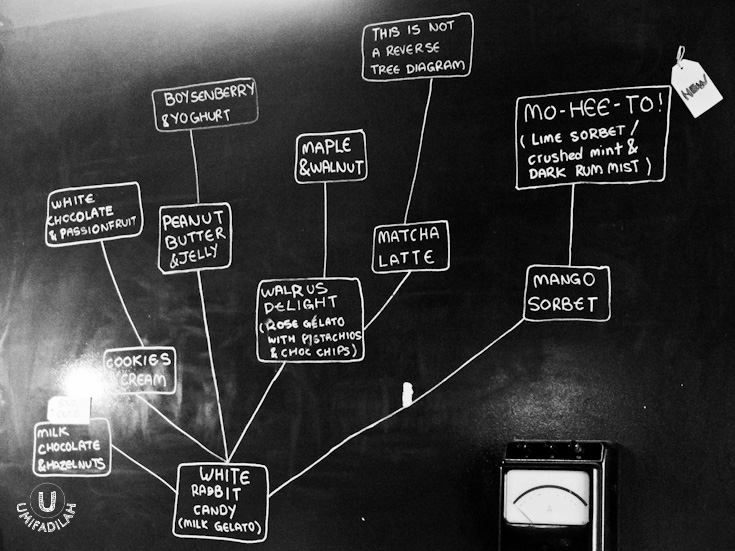 THIS IS NOT
A REVERSE
TREE DIAGRAM
BOYSENBERRY
& YOGHURT
MO-HEE-TO!
( LIME SORBET /
crushed mint &
DARK RUM MIST )
NEW
MAPLE
& WALNUT
WHITE
CHOCOLATE
& PASSIONFRUIT
PEANUT
BUTTER
& JELLY
MATCHA
LATTE
WALRUS
DELIGHT
(ROSE GELATO
WITH PISTACHIOS
& CHOC CHIPS)
MANGO
SORBET
COOKIES
CREAM
MILK
CHOCOLATE
& HAZELNUTS
WHITE
RABBIT
CANDY
(MILK GELATO)
A
U
UMIFADILAH